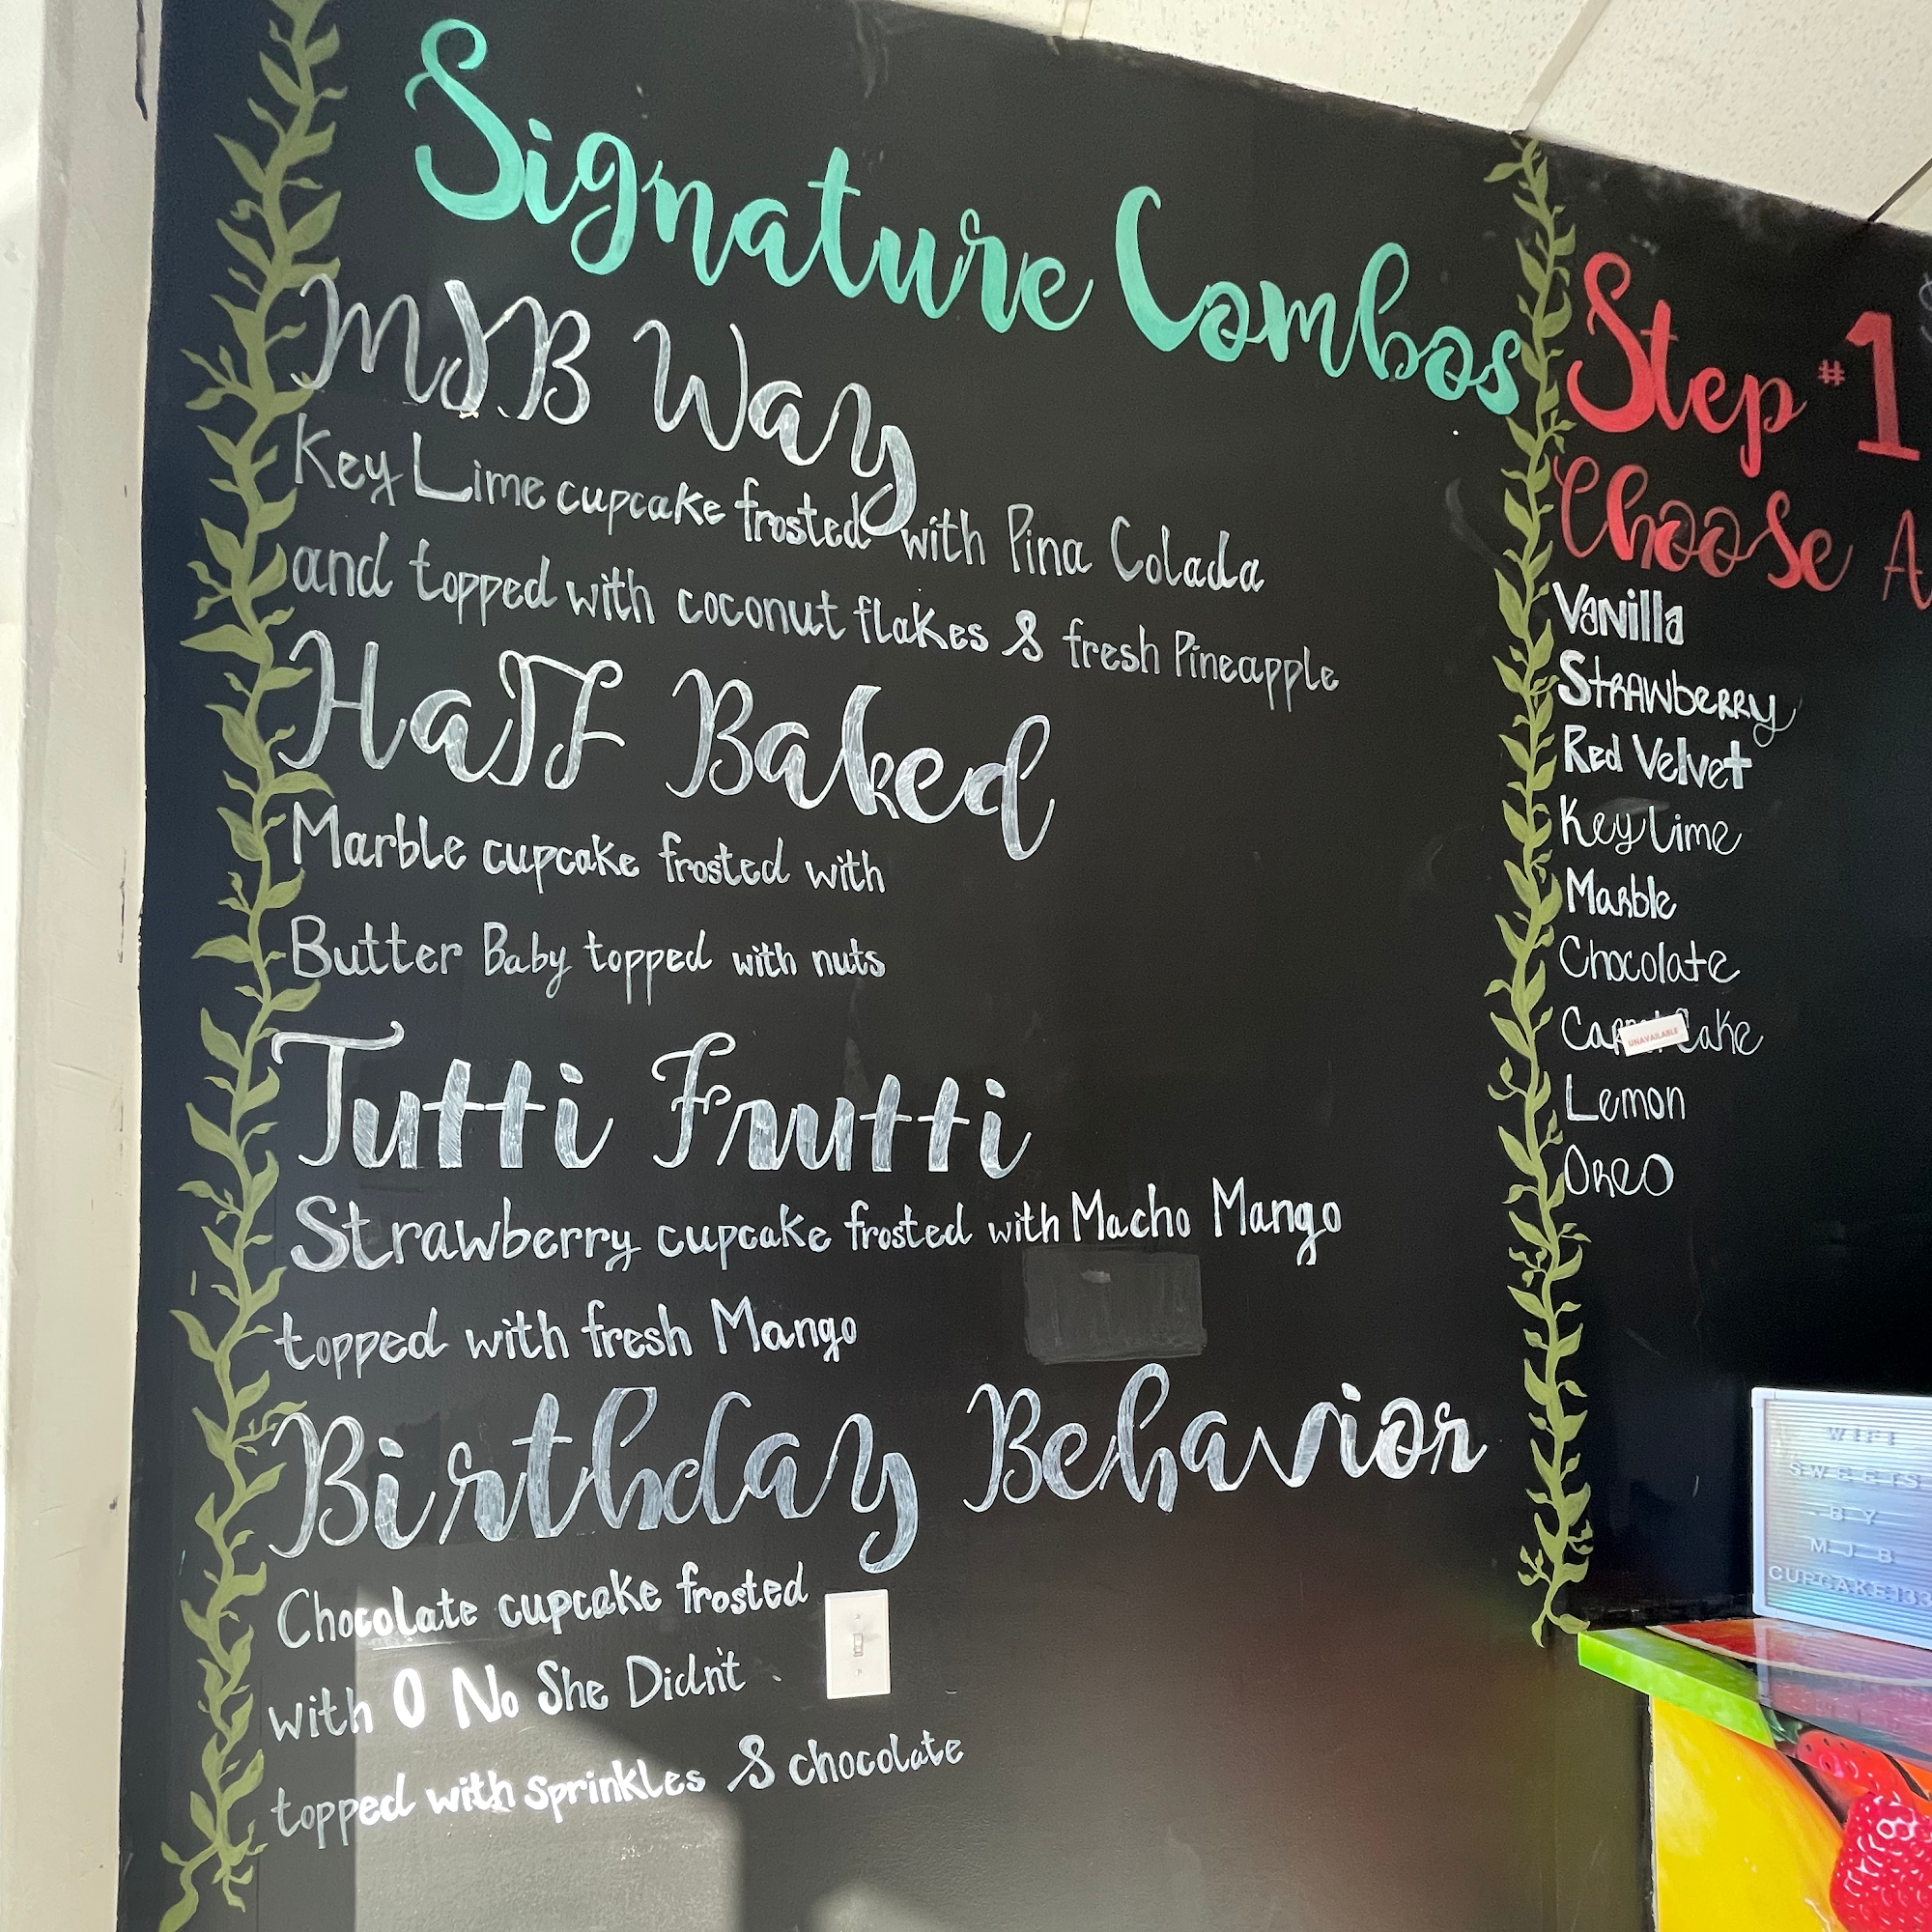 Signature Combos
MJB Way
Key Lime cupcake frosted with Pina Colada
and topped with coconut flakes & fresh Pineapple
Half Baked
Marble cupcake frosted with
Butter Baby topped with nuts
Tutti Frutti
Strawberry cupcake frosted with Macho Mango
topped with fresh Mango
Birthday Behavior
Chocolate cupcake frosted
with O No She Didn't
topped with sprinkles & chocolate
Step #1
Choose A
Vanilla
Strawberry
Red Velvet
Key Lime
Marble
Chocolate
Carrot Cake
UNAVAILABLE
Lemon
Oreo
WIFI
SWEETS
BY
MJB